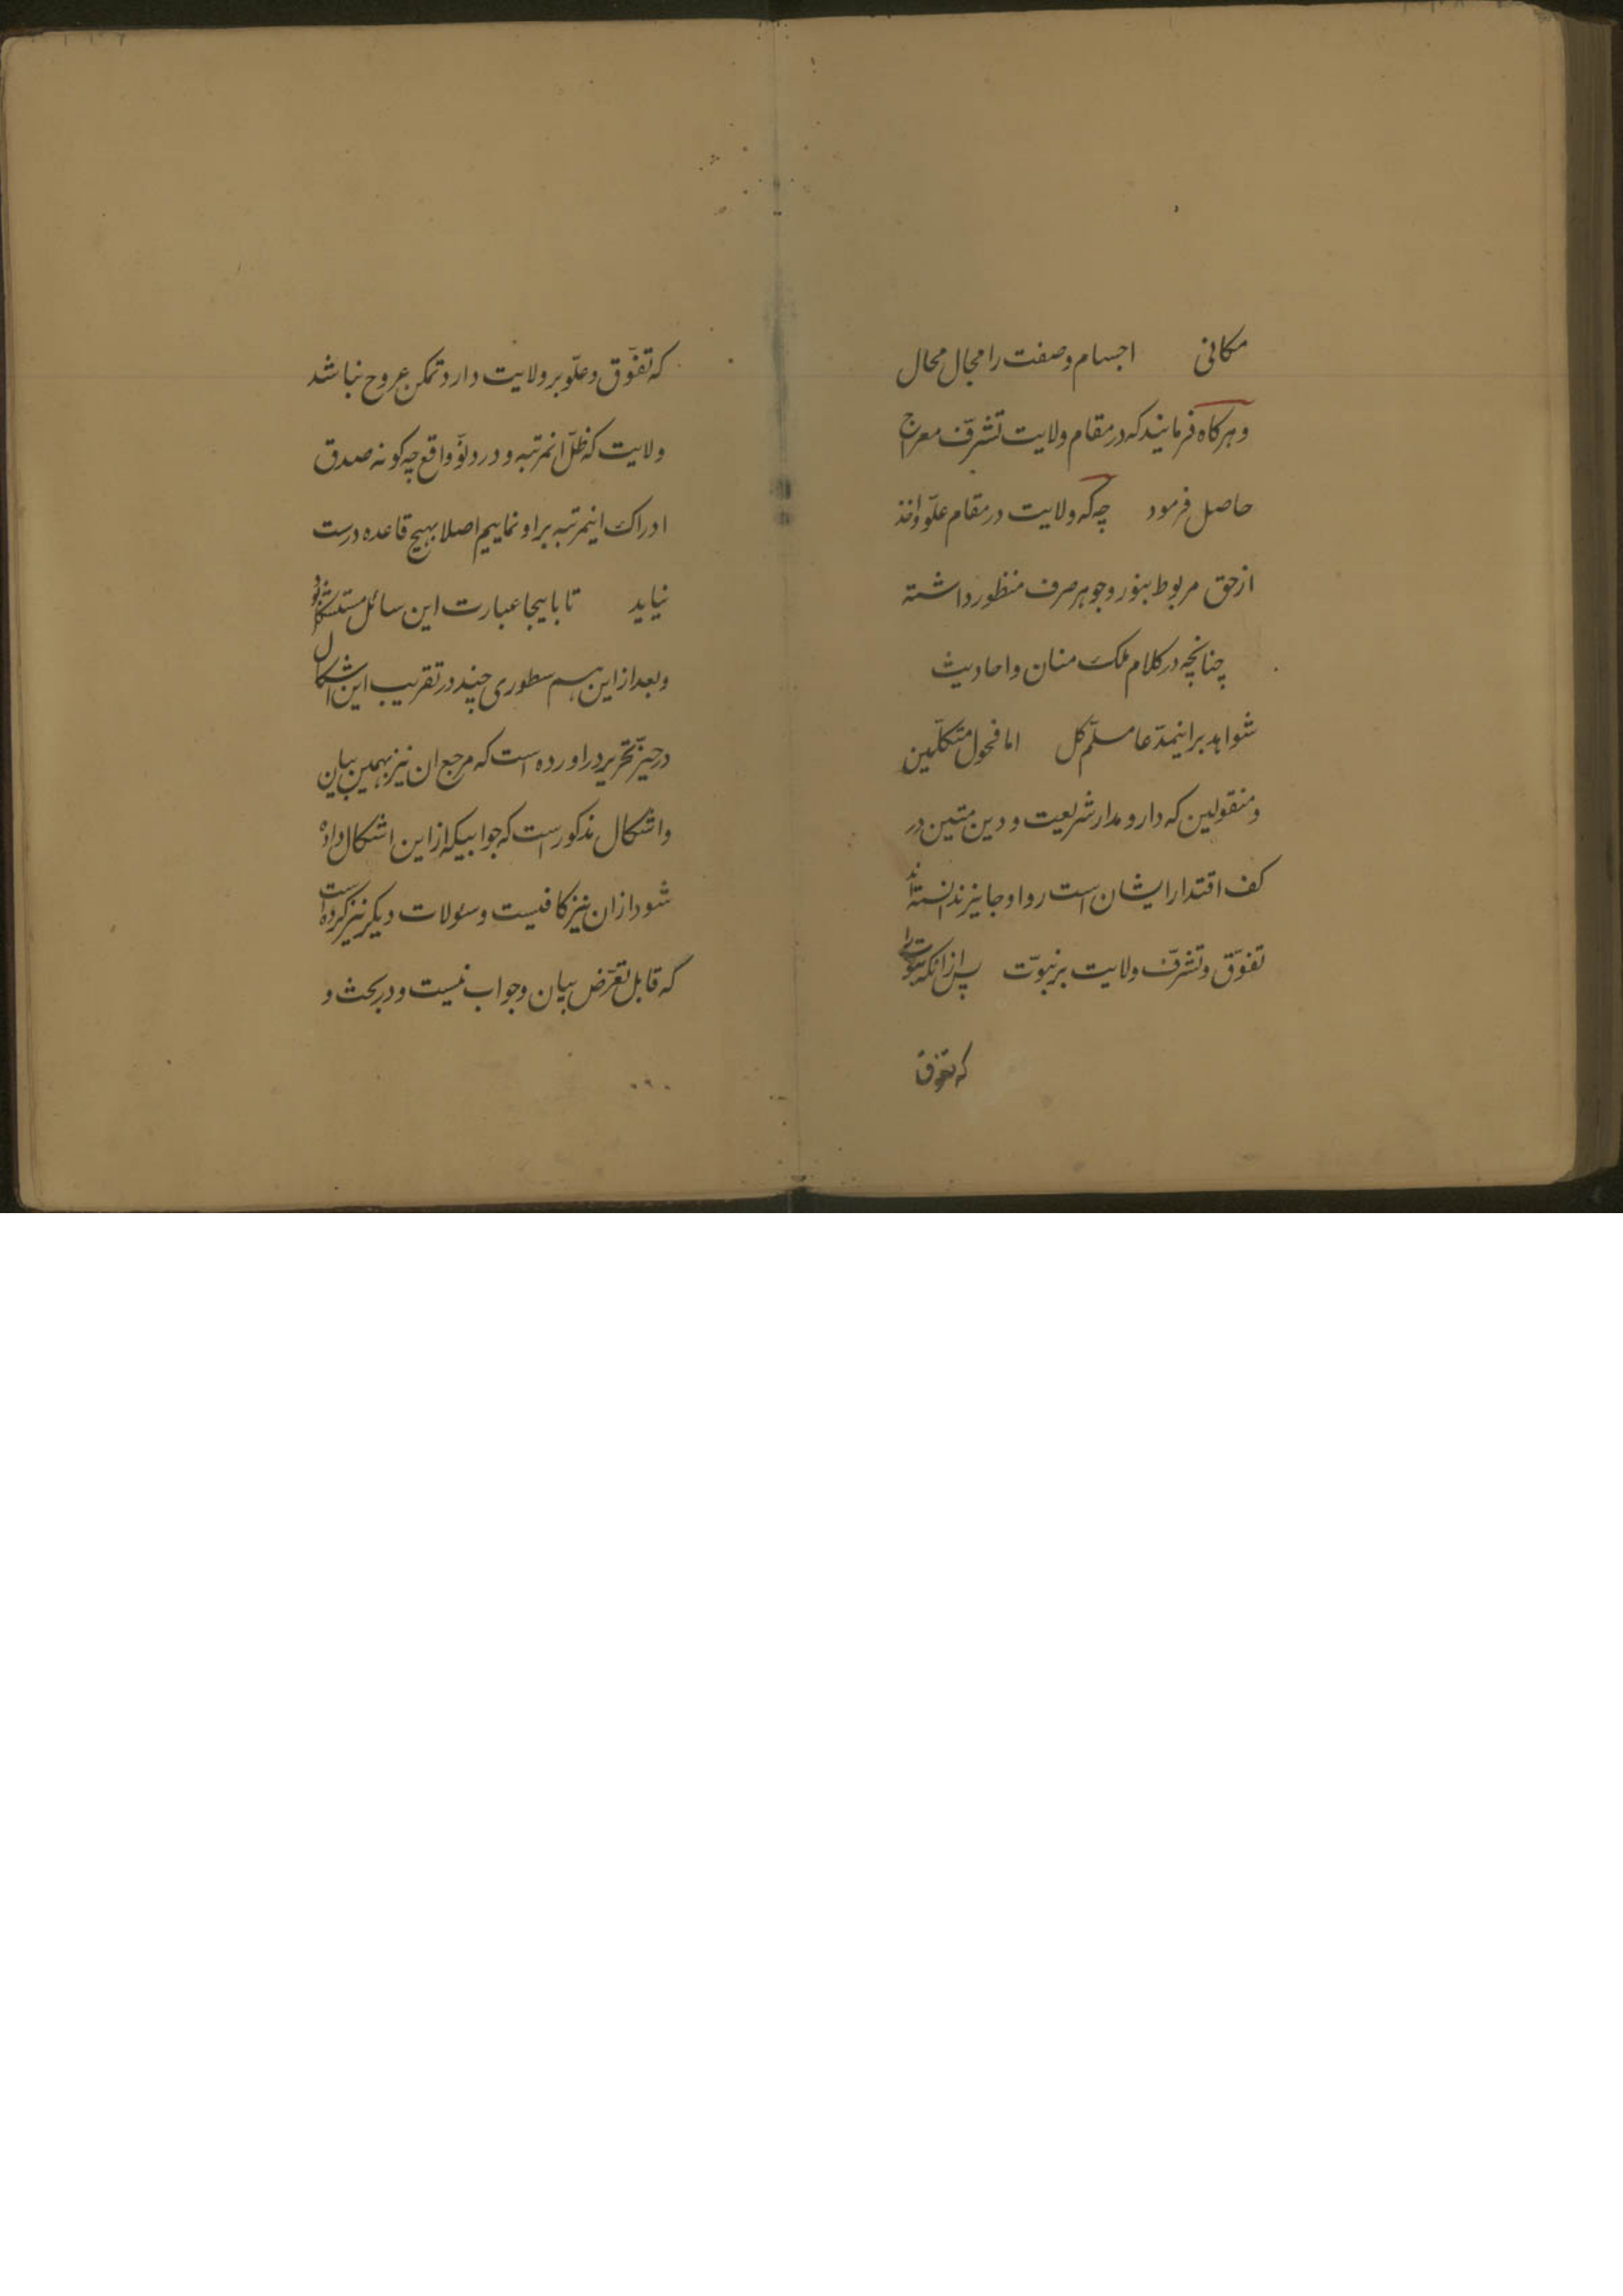 مکانی اجسام وصفت را مجال محال
و هرکاه فرمایند که در مقام ولایت تشرّف معراج
حاصل فرمود چه که ولایت در مقام علوّ و اخذ
از حق مربوط بنور و جوهر صرف منظور داشته
چنانچه در کلام ملک منان و احادیث
شواهد بر اینمدّعا مسلّم کل اما فحول متکلّمین
و منقولین که دار و مدار شریعت و دین متین در
کف اقتدار ایشان است روا و جایز ندانسته‌اند
تفوّق و تشرّف ولایت بر نبوّت پس از انکه نبوّت را
که تفوق
که تفوّق و علوّ بر ولایت دارد تمکن عروج نباشد
ولایت که ظلّ انمرتبه و در دنوّ واقع چه کونه صدق
ادراک اینمرتبه بر او نماییم اصلا بهیچ قاعده درست
نیاید تا باینجا عبارت این سائل مستشکل بود
و بعد از این هم سطوری چند در تقریب این اشکال
در حیّز تحریر در اورده است که مرجع ان نیز بهمین بیان
و اشکال مذکور است که جوابیکه از این اشکال داده
شود از ان نیز کافیست و سئولات دیکر نیز کرده است
که قابل تعرّض بیان و جواب نیست و در بحث و